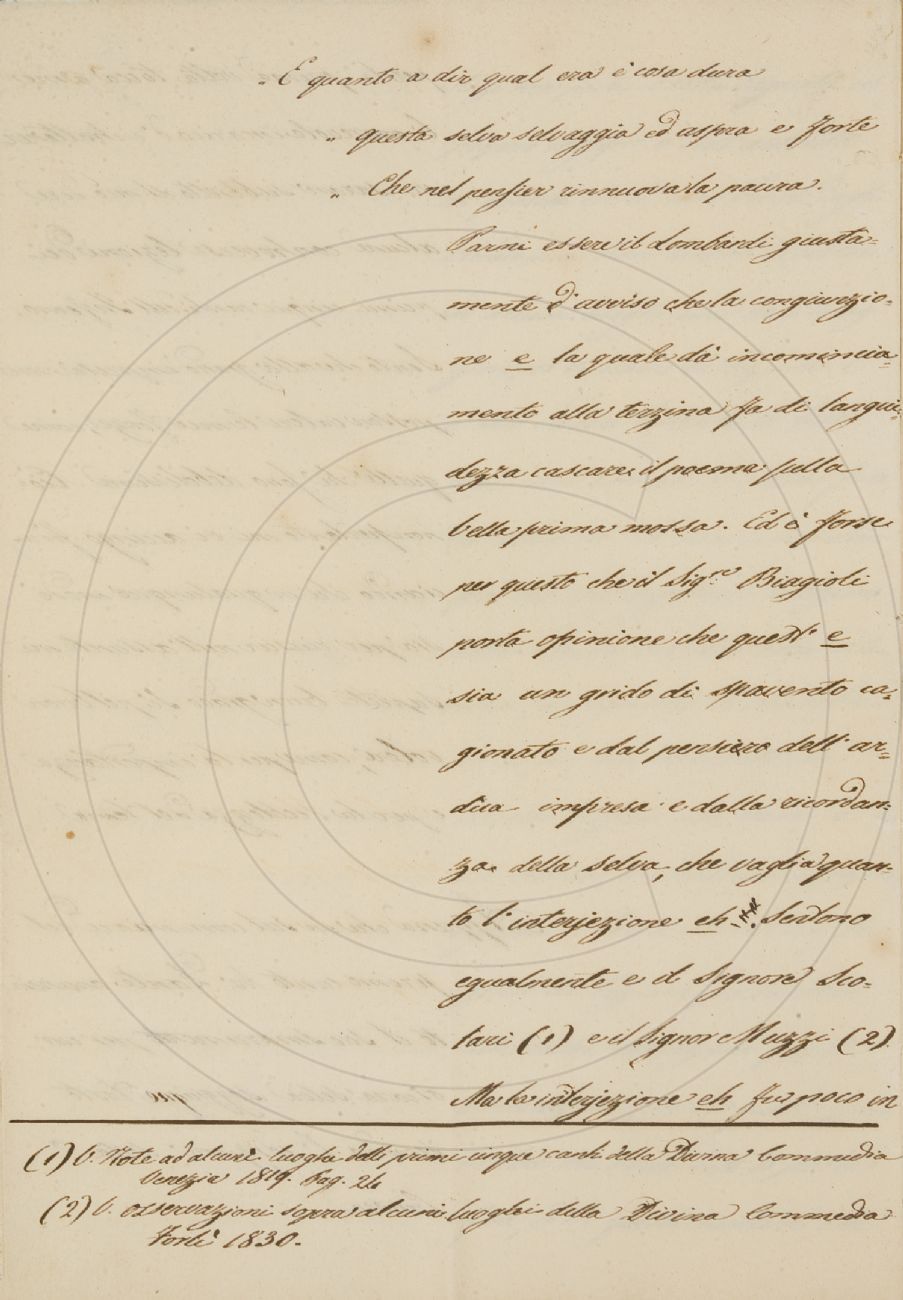 „ E quanto a dir qual era è cosa dura
„ questa selva selvaggia ed aspra e forte
„ Che nel pensier rinnuova la paura.
Parmi essere il Lombardi giusta=
mente d'avviso che la congiunzio=
ne e la quale dà incomincia=
mento alla terzina fa di langui=
dezza cascare il poema sulla
bella prima mossa. Ed è forse
per questo che il Sig.re Biagioli
porta opinione che quest' e
sia un grido di spavento ca=
gionato e dal pensiero dell' ar=
dua impresa e dalla ricordan=
za della selva, che vaglia quan=
to l'interjezione eh! Sentono
egualmente e il Signore Sco=
lari (1) e il Signor Muzzi (2).
Ma la interjezione eh fu poco in
(1) V. Note ad alcuni luoghi delli primi cinque canti della Divina Commedia
Venezia 1819. Pag. 24
(2) V. osservazioni sopra alcuni luoghi della Divina Commedia
Forlì 1830.